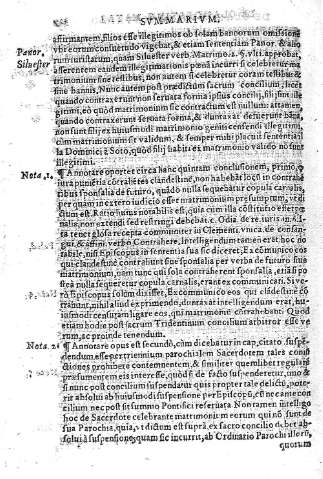 SVMMARIVM.
affirmantem, filios esse illegitimos ob solam bannorum omissione
Panor. vbi eorum consuetudo vigebat, & etiam sententiam Panor. & alio
Siluester rum iurisstarum, quam Siluester verb. Matrimo. 2. §. vlti. approbat,
asserentem eandem illegitimationis pœna incurri si celebretur ma
trimonium sine testibus, non autem si celebretur coram testibus &
sine bannis. Nunc autem post prædictum sacrum concilium, licet
quando contraxerunt non seruata forma ipsius concilij, filij sint ille
gitimi, eo quòd matrimonium sic contractum est nullum: attamen,
quando contraxerunt seruata forma, &
non sunt filij ex huiusmodi matrimonio geniti censendi illegitimi,
cùm matrimonium sit validum, & semper mihi placuit sententia
la Dominici à Soto, quòd filij habiti ex matrimonio valido nō sunt
illegitimi.
Nota .1. ¶ Annotare oportet circa hanc quintam conclusionem, primò,
iura punientia cōtrahētes clandestinè, non habebāt locū in contrahē
tibus sponsalia de futuro, quādo nulla sequebatur copula carnalis,
per quam in extero iudicio esset matrimonium præsumptum, vt di
ctum est. Ratio huius notabilis est, quia cum illa cōstitutio esset pœ
nalis, non extendi sed restringi debebat c. Odia. de re. iuris. in 6.
tenet glosa recepta communiter in Clementi. vnica. de consan-
gui. & affini. verbo Contrahere. Intelligendum tamen erat hoc no
tabile, nisi Episcopus in sententia sua sic diceret, Excōmunico eos
qui clandestinè contrahunt siue sponsalia per verba de futuro siue
matrimonium, nam tunc qui sola contraherent sponsalia, etiā si po
stea nulla sequeretur copula carnalis, erant excommunicati. Si ve-
rò Episcopus solum dixisset, Excōmunico eos qui clādestinè cō
trahunt, nihil aliud exprimendo, dumtaxat intelligendum erat, hu-
iusmodi censuram ligare eos, qui matrimoniū contrahebant. Quod
etiam hodie post sacrum Tridentinum concilium arbitror esse ve
rum, ac proinde tenendum.
Nota. 2. ¶ Annotare opus est secundò, cùm dicebatur in cap. citato, suspē
dendum esse per triennium parochialem Sacerdotem tales coniū
ctiones prohibere contemnentem, & similiter quemlibet regularē
præsumentem eis interesse, quòd si de facto suspenderetur, imo &
si nunc post concilium suspendatur quis propter tale delictū, pote-
rit absolui ab huiusmodi suspensione per Episcopū, est ne came con
cilium nec post sit summo Pontifici reseruata. Non tamen intelligo
hoc de Sacerdote celebrante matrimonium eorum qui nō sunt de
sua Parochia, quia, vt dictum est, ex sacro concilio debet ab-
solui à suspensione, quam sic incurrit, ab Ordinario Parochi illoru,
quorum